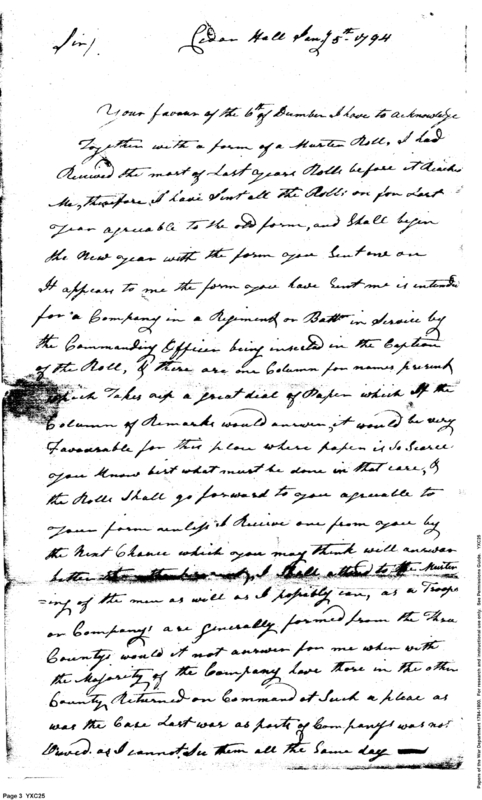 Cedar Hall Jany 5th 1794
Sir/
Your favour of the 6th of Dember I have to acknowledge
Together with a form of a Muster Roll, I had
Reciived the most of Last years Rolls before it Reach
Me, therefore I have Sent all the Rolls on for Last
year agreable to the old form, and Shall begin
the New year with the form you Sent one on
It appears to me the form you have Sent me is intend
for a Company in a Regiment or Battn in Service by
the Commanding Officer being inserted in the Caption
of the Roll, & there are one Column for names present
which Takes up a great dial of Paper which If the
Column of Remarks would answer, it would be very
Favourable for this place where paper is So Scarce
you Know best what must be done in that case, &
the Rolls Shall go forward to you agreeable to
your form unless I Reciive one from you by
the Next Chance which you may think will answer
better I Shall attend to the Muster
=ing of the men as will as I possibly can, as a Troops
or Companys are generally formed from the Three
Countys would it not answer for me when with
the Majority of the Company have those in the other
County Returned on Command at Such a place as
was the Case Last war as parts of Companys was not
as I cannot See them all the Same day
Page 3 YXC25
Papers of the War Department 1784-1800. For research and instructional use only. See Permissions Guide. YXC25